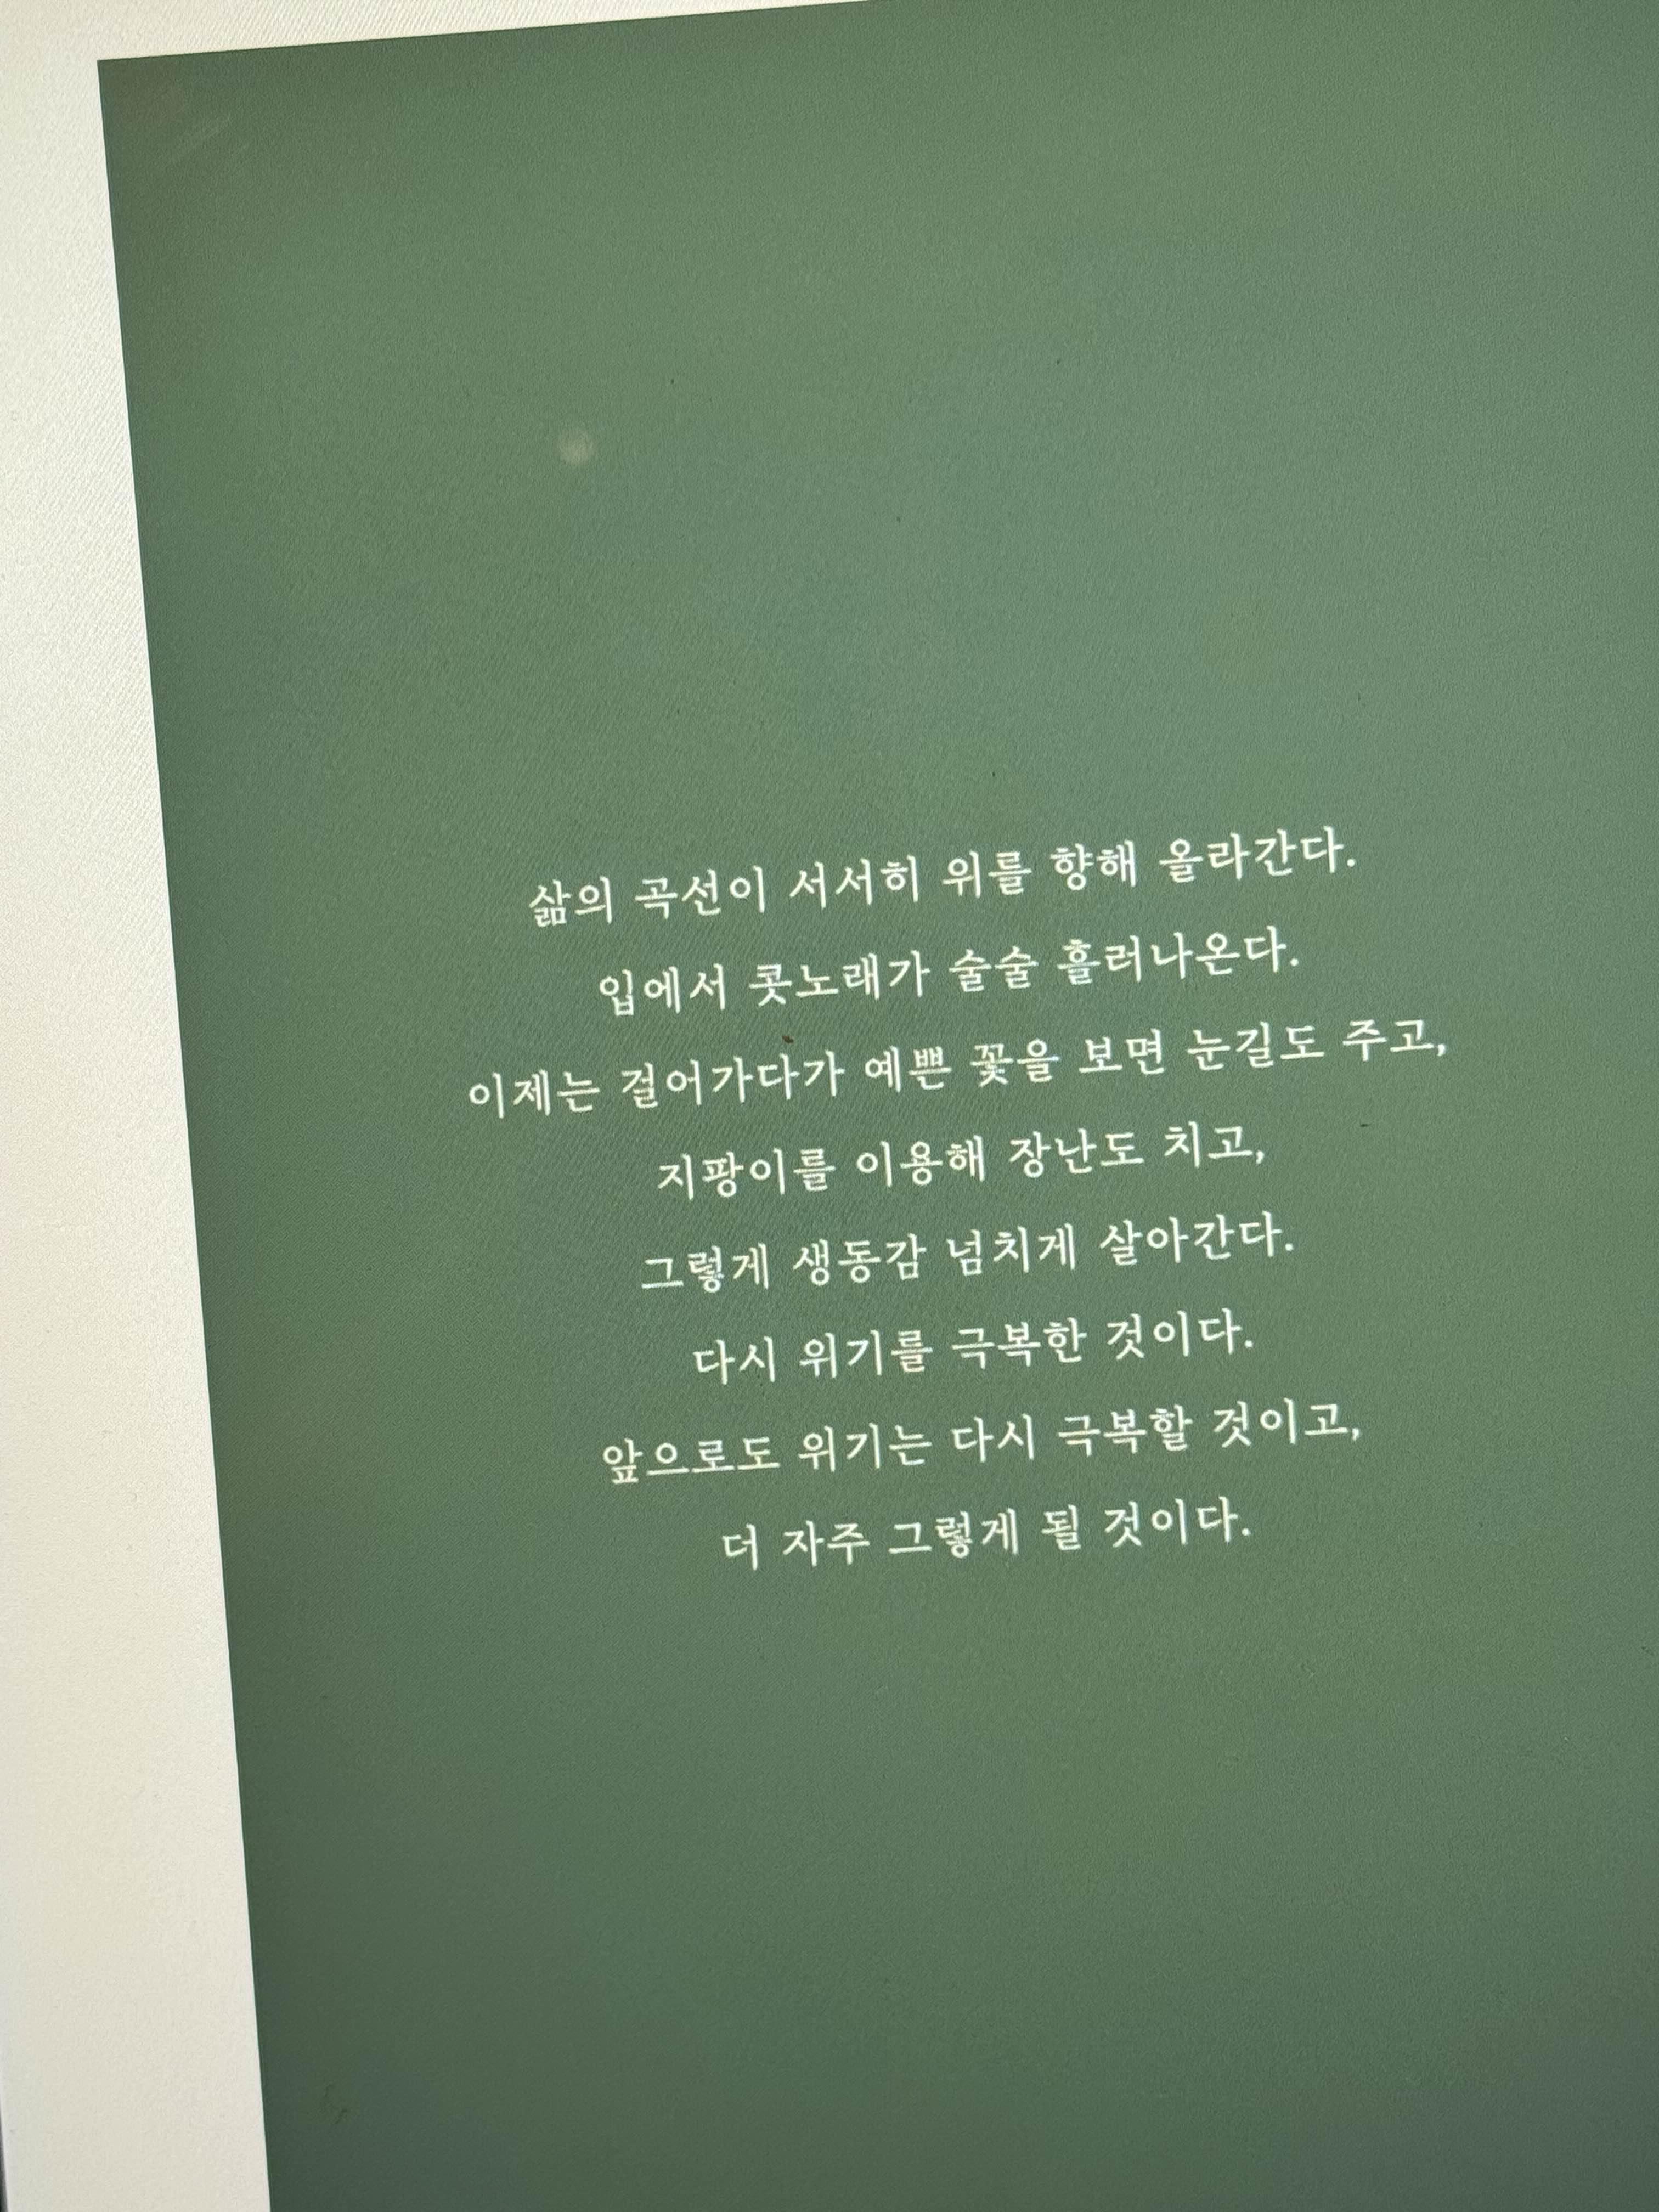 삶의 곡선이 서서히 위를 향해 올라간다.
입에서 콧노래가 술술 흘러나온다.
이제는 걸어가다가 예쁜 꽃을 보면 눈길도 주고,
지팡이를 이용해 장난도 치고,
그렇게 생동감 넘치게 살아간다.
다시 위기를 극복한 것이다.
앞으로도 위기는 다시 극복할 것이고,
더 자주 그렇게 될 것이다.